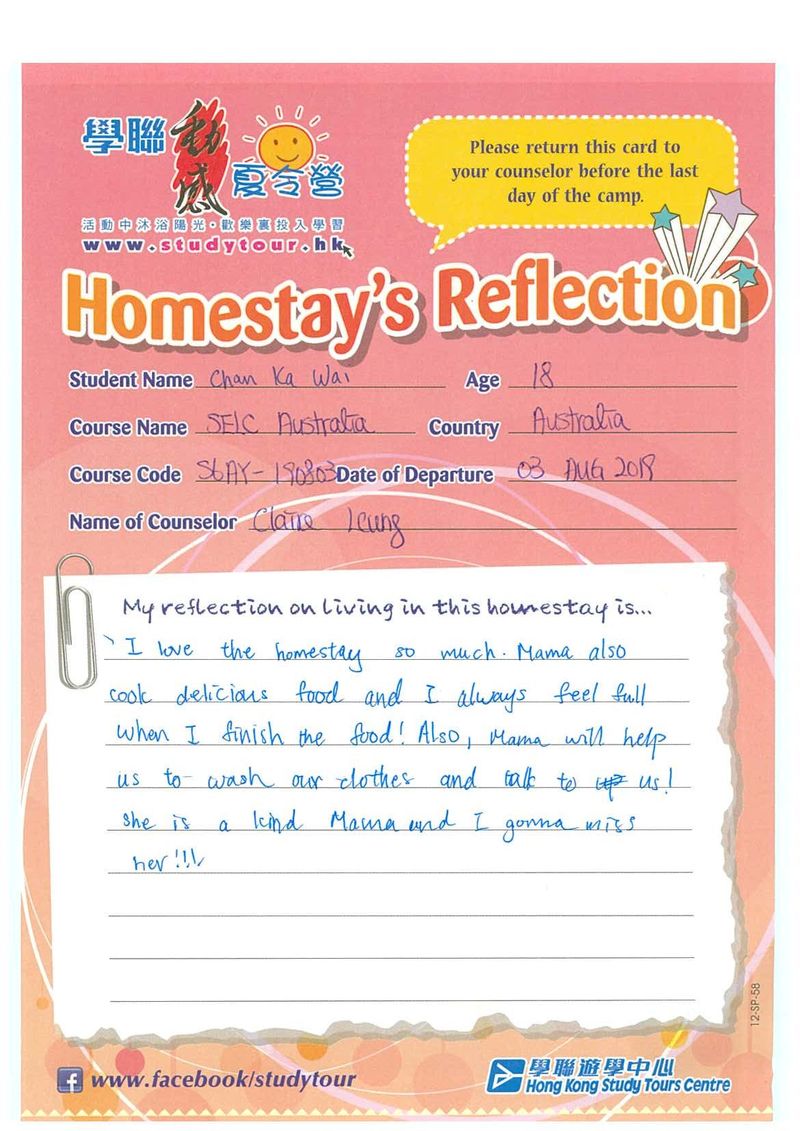 學聯 動感 夏令營
活動中沐浴陽光・歡樂裏投入學習
www.studytour.hk
Please return this card to
your counselor before the last
day of the camp.
Homestay's Reflection
Student Name Chan Ka Wai Age 18
Course Name SEIC Australia Country Australia
Course Code S6AY-190803 Date of Departure 03 AUG 2019
Name of Counselor Claire Leung
My reflection on living in this homestay is...
I love the homestay so much. Mama also
cook delicious food and I always feel full
when I finish the food! Also, Mama will help
us to wash our clothes and talk to us!
She is a kind Mama and I gonna miss
her!!!
12-SP-58
www.facebook/studytour
學聯遊學中心
Hong Kong Study Tours Centre